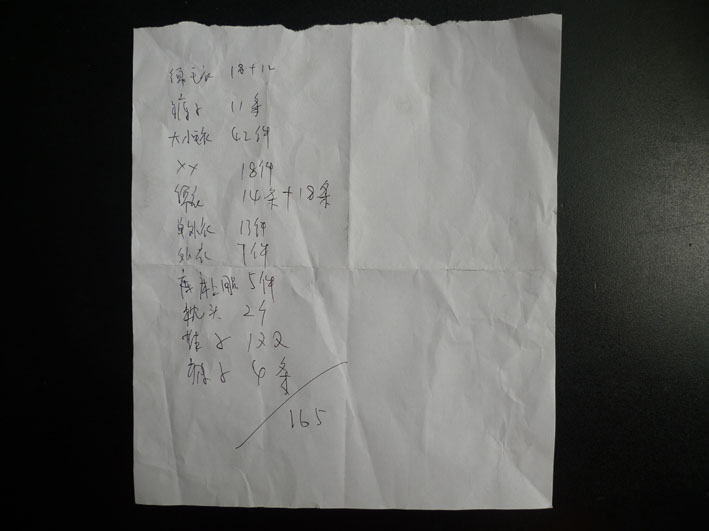 18+12
11条
大小衣 42件
XX 18件
14条+18条
单外衣 13件
外衣 7件
床上用品 5件
枕头 2个
鞋子 1双
裤子 4条
165